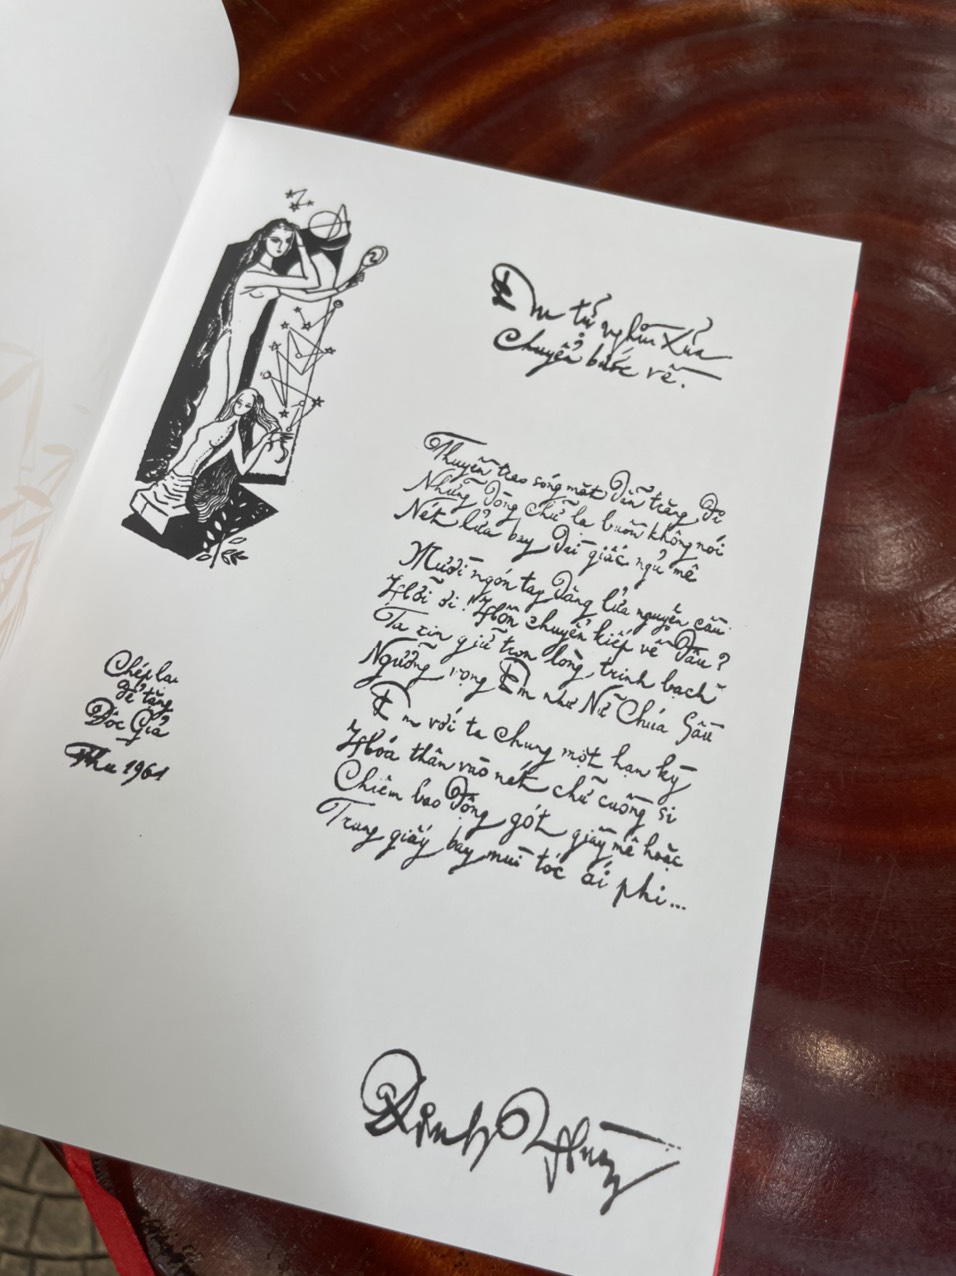 Em từ nghìn xưa
Chuyển bước về.
Thuyền trao sóng mắt dẫn trăng đi
Những dòng chữ lạ buồn không nói
Nét lửa bay dài giấc ngủ mê
Mười ngón tay dâng lửa nguyện cầu
Hỡi ơi! Hồn chuyển kiếp về đâu?
Ta xin giữ trọn lòng trinh bạch
Ngưỡng vọng Em như Nữ Chúa Sầu
Em với ta chung một hạn kỳ
Hoá thân vào nét chữ cuồng si
Chiêm bao động gót giầy mê hoặc
Trang giấy bay mùi tóc ái phi...
Chép lại
để tặng
Độc Giả
Thu 1961
Đinh Hùng